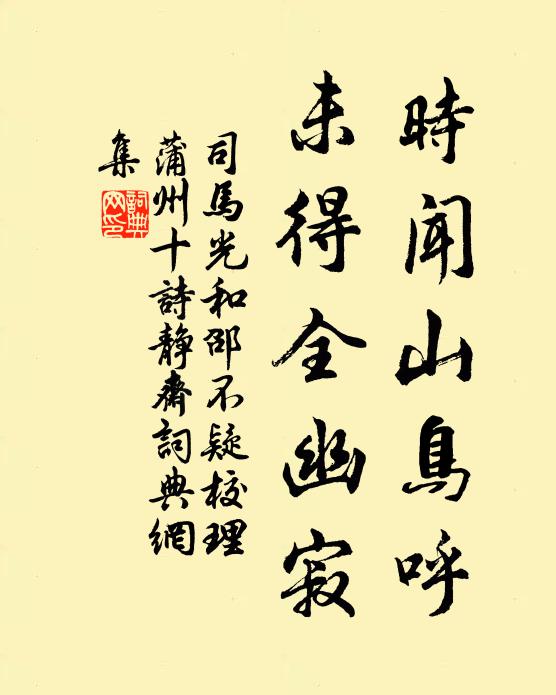 時聞山鳥呼
未得全幽寂
司馬光和邵不疑校理
蒲州十詩靜齋詞典網
集
詞典網印